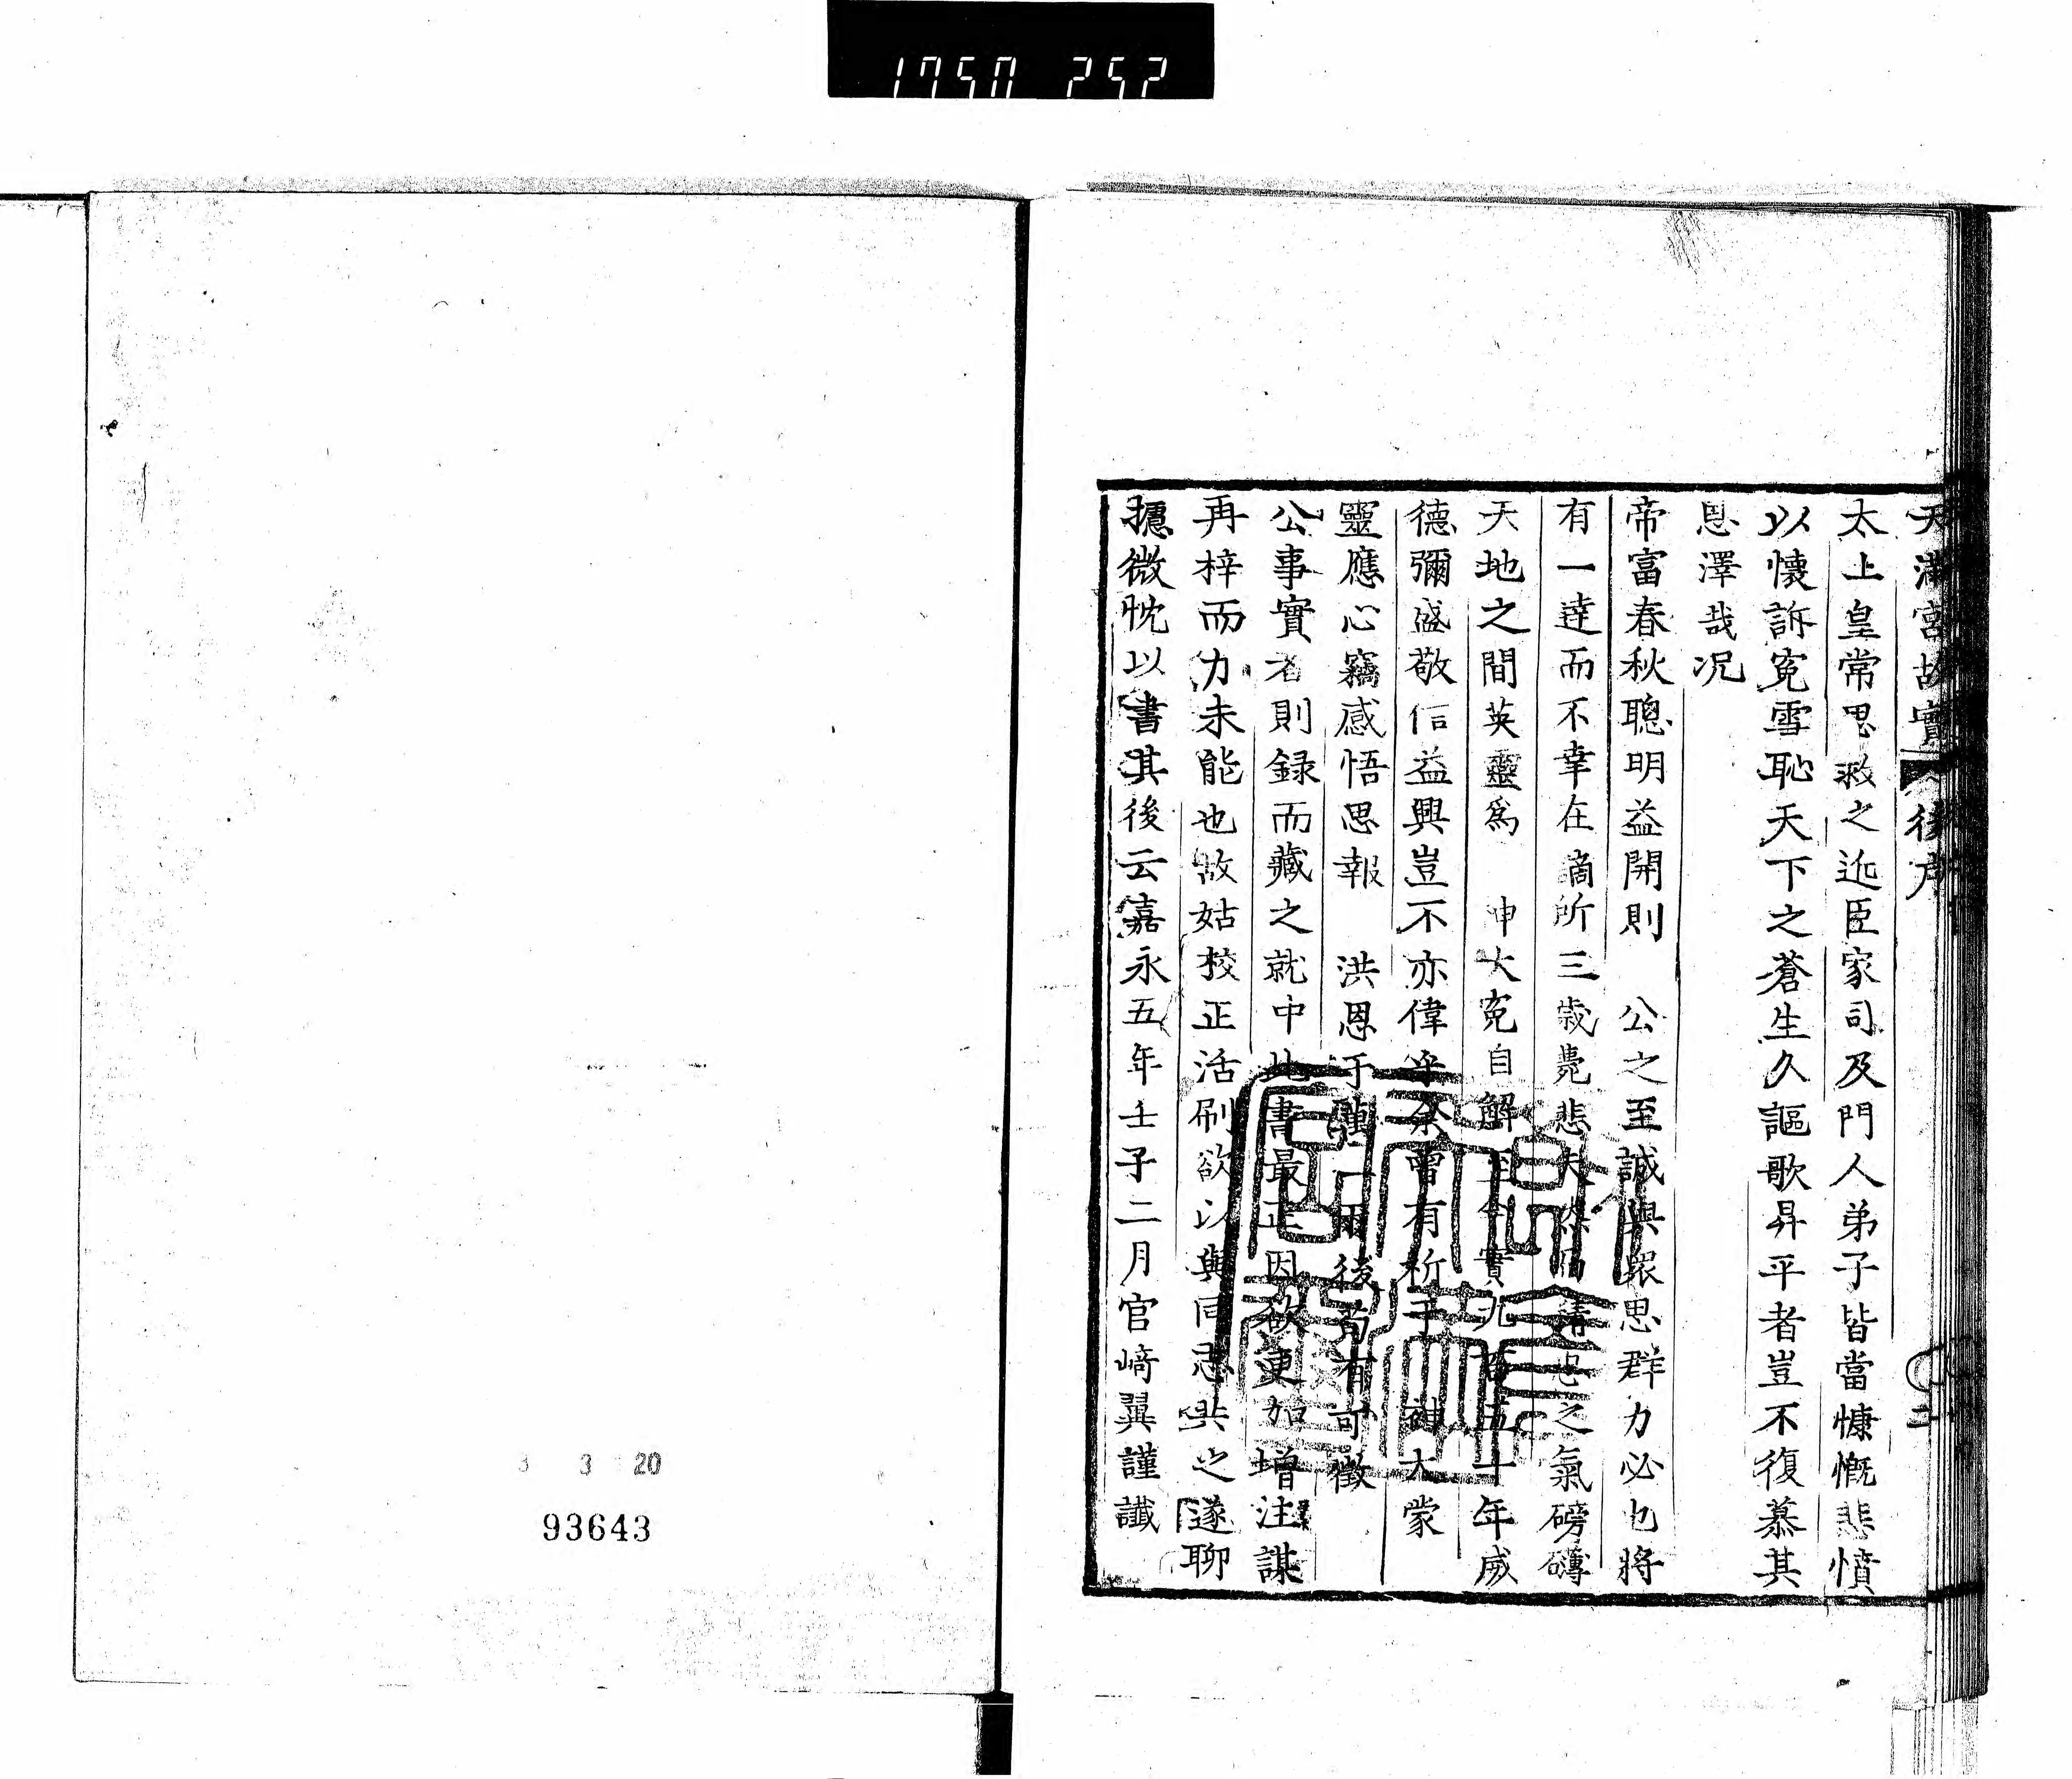 1750 252
天滿宮故實 後序 二
太上皇常思救之近臣家司及門人弟子皆當慷慨悲憤
以懷訴寃雪恥天下之蒼生久謳歌昇平者豈不復慕其
恩澤哉况
帝富春秋聰明益開則　公之至誠與衆思群力必也將
有一達而不幸在謫所三歲薨悲夫　也之氣磅礴
天地之間英靈爲　神大寃自解至今實九百五十年威
德彌盛敬信益興豈不亦偉乎余曾有祈于　神大蒙
靈應心竊感悟思報　洪恩于萬一爾後苟有可徵
公事實者則録而藏之就中此書最正因欲更加增注謀
再梓而力未能也故姑校正活刷欲以與同志共之遂聊
攄微忱以書其後云嘉永五年壬子二月官﨑翼謹識
3 20
93643